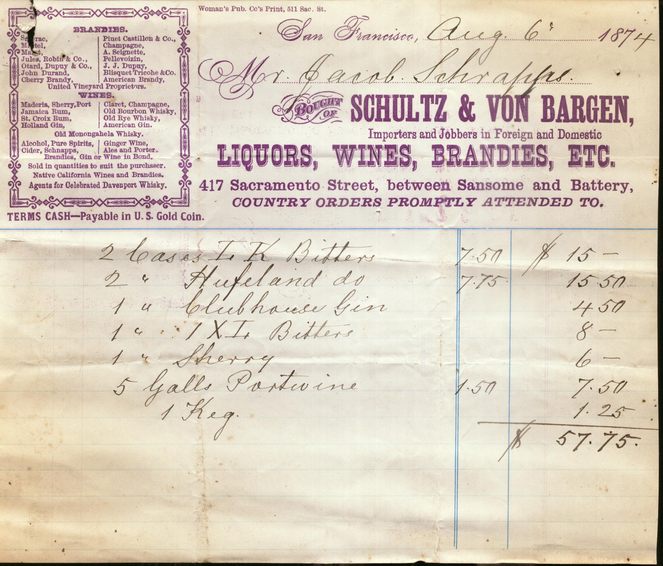 Woman's Pub. Co's Print, 511 Sac. St.
San Francisco, Aug. 6 1874
Mr. Jacob Schrapps.
BOUGHT OF SCHULTZ & VON BARGEN,
Importers and Jobbers in Foreign and Domestic
LIQUORS, WINES, BRANDIES, ETC.
417 Sacramento Street, between Sansome and Battery,
COUNTRY ORDERS PROMPTLY ATTENDED TO.
BRANDIES.
Pinet Castillon & Co.,
Martel, Champagne,
A. Seignette,
Jules, Robin & Co., Pellevoizin,
Otard, Dupuy & Co., J. J. Dupuy,
John Durand, Blisquet Tricohe & Co.
Cherry Brandy, American Brandy,
United Vineyard Proprietors.
WINES.
Maderia, Sherry, Port Claret, Champagne,
Jamaica Rum, Old Bourbon Whisky,
St. Croix Rum, Old Rye Whisky,
Holland Gin, American Gin.
Old Monongahela Whisky,
Alcohol, Pure Spirits, Ginger Wine,
Cider, Schnapps, Ales and Porter.
Brandies, Gin or Wine in Bond.
Sold in quantities to suit the purchaser.
Native California Wines and Brandies.
Agents for Celebrated Davenport Whisky.
TERMS CASH—Payable in U. S. Gold Coin.
2 Cases L K Bitters 7.50 $ 15 –
2 " Hufeland do 7.75 15.50
1 " Clubhouse Gin 4 50
1 " I X L Bitters 8 –
1 " Sherry 6 –
5 Galls Portwine 1.50 7.50
1 Keg. 1.25
$ 57.75.